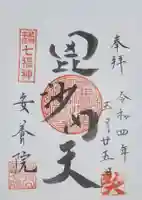 奉拝
令和四年
五月廿五日
毘沙門天
七福神
安養院